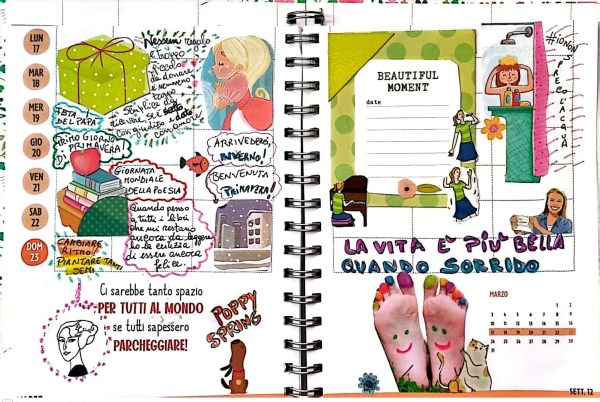 LUN
17
MAR
18
MER
19
GIO
20
VEN
21
SAB
22
DOM
23
Nessun regalo
è troppo
piccolo
da donare
e nemmeno
troppo
semplice da
ricevere, se è scelto
con giudizio e dato
con amore
FESTA
DEL PAPA'
PRIMO GIORNO
DI PRIMAVERA!
ARRIVEDERCI,
INVERNO!
BENVENUTA
PRIMAVERA!
GIORNATA
MONDIALE
DELLA POESIA
Quando penso
a tutti i libri
che mi restano
ancora da leggere
ho la certezza
di essere ancora
felice.
CAMBIARE
RITMO!
PIANTARE TANTI
SEMI
Ci sarebbe tanto spazio
PER TUTTI AL MONDO
se tutti sapessero
PARCHEGGIARE!
POPPY
SPRING
BEAUTIFUL
MOMENT
date
#IONONSPRECOL'ACQUA
LA VITA E' PIU' BELLA
QUANDO SORRIDO
MARZO
1 2
3 4 5 6 7 8 9
10 11 12 13 14 15 16
17 18 19 20 21 22 23
24 25 26 27 28 29 30
31
SETT. 12